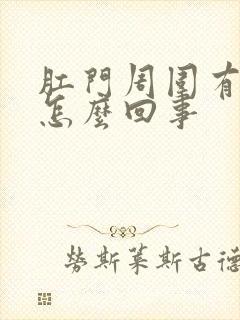 肛門周圍有
怎麼回事
勞斯萊斯古德